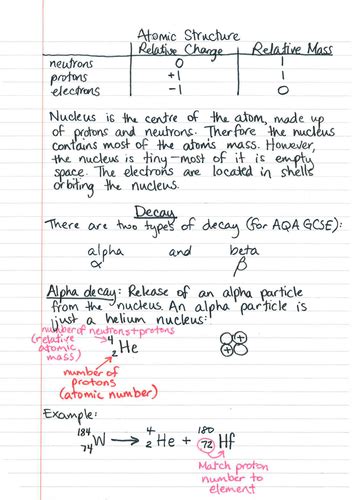 Atomic Structure
Relative Charge Relative Mass
neutrons 0 1
protons +1 1
electrons -1 0
Nucleus is the centre of the atom, made up
of protons and neutrons. Therfore the nucleus
contains most of the atoms mass. However,
the nucleus is tiny - most of it is empty
space. The electrons are located in shells
orbiting the nucleus.
Decay
There are two types of decay (for AQA GCSE):
alpha and beta
α β
Alpha decay: Release of an alpha particle
from the nucleus. An alpha particle is
just a helium nucleus:
number of neutrons+protons
(relative atomic mass)
⁴₂He
+ +
number of protons
(atomic number)
Example:
¹⁸⁴₇₄W → ⁴₂He + ¹⁸⁰₇₂Hf
Match proton
number to
element